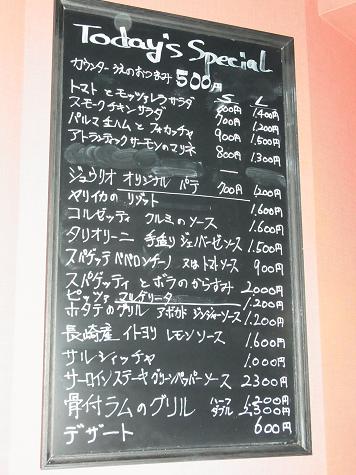 Today's Special
カウンターうえのおつまみ 500円
S L
トマトとモッツァレラサラダ 800円 1,400円
スモークチキンサラダ 700円 1,200円
パルマ生ハムとフォカッチャ 900円 1,500円
アトランティックサーモンのマリネ 800円 1,300円
ジュウリオ オリジナル パテ 700円 1,200円
ヤリイカのリゾット 1,600円
コルゼッティ クルミのソース 1,600円
タリオリーニ 手造りジェノバーゼソース 1,500円
スパゲッテペペロンチーノ 又はトマトソース 900円
スパゲッティとボラのからすみ 2000円
ピッツァ マルゲリータ 1,200円
ホタテのグリル アボカド ジンジャーソース 1,200円
長崎産 イトヨリ レモンソース 1,600円
サルシィッチャ 1,000円
サーロインステーキ グリーンペッパーソース 2300円
骨付ラムのグリル ハーフ 1,200円
ダブル 2,300円
デザート 600円